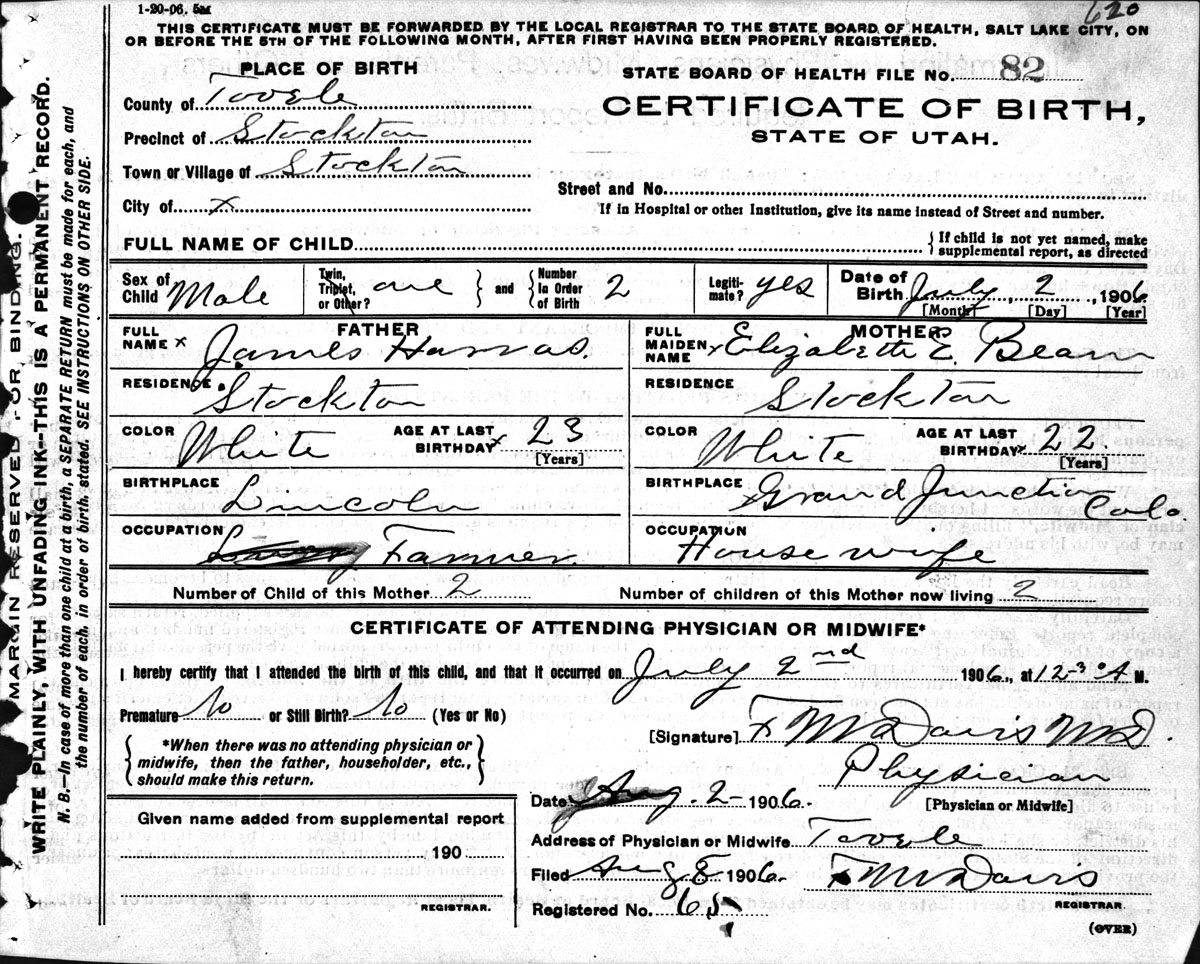 1-20-06. 5M
620
THIS CERTIFICATE MUST BE FORWARDED BY THE LOCAL REGISTRAR TO THE STATE BOARD OF HEALTH, SALT LAKE CITY, ON
OR BEFORE THE 5TH OF THE FOLLOWING MONTH, AFTER FIRST HAVING BEEN PROPERLY REGISTERED.
MARGIN RESERVED FOR BINDING.
WRITE PLAINLY, WITH UNFADING INK--THIS IS A PERMANENT RECORD.
N. B.—In case of more than one child at a birth, a SEPARATE RETURN must be made for each, and
the number of each, in order of birth, stated. SEE INSTRUCTIONS ON OTHER SIDE.
PLACE OF BIRTH
County of Tooele
Precinct of Stockton
Town or Village of Stockton
City of x
STATE BOARD OF HEALTH FILE NO. 82
CERTIFICATE OF BIRTH,
STATE OF UTAH.
Street and No.
If in Hospital or other Institution, give its name instead of Street and number.
FULL NAME OF CHILD
{ If child is not yet named, make
supplemental report, as directed
Sex of Child Male
Twin, Triplet, or Other? one } and { Number in Order of Birth 2
Legiti- mate? yes
Date of Birth July 2, 1906
[Month] [Day] [Year]
FATHER
FULL NAME x James
RESIDENCE Stockton
COLOR White AGE AT LAST BIRTHDAY x 23
[Years]
BIRTHPLACE Lincoln
OCCUPATION Farmer
MOTHER
FULL MAIDEN NAME x Elizabeth E.
RESIDENCE Stockton
COLOR White AGE AT LAST BIRTHDAY x 22
[Years]
BIRTHPLACE x Grand Junction Colo.
OCCUPATION House wife
Number of Child of this Mother 2 Number of children of this Mother now living 2
CERTIFICATE OF ATTENDING PHYSICIAN OR MIDWIFE*
I hereby certify that I attended the birth of this child, and that it occurred on July 2nd 1906, at 12-30 A M.
Premature No or Still Birth? No (Yes or No)
{ *When there was no attending physician or
midwife, then the father, householder, etc.,
should make this return. }
[Signature] x M Davis MD.
Physician
[Physician or Midwife]
Date Aug. 2- 1906.
Given name added from supplemental report
190
REGISTRAR.
Address of Physician or Midwife Tooele
Filed Aug 8 1906. M Davis
REGISTRAR
Registered No. 65
(OVER)